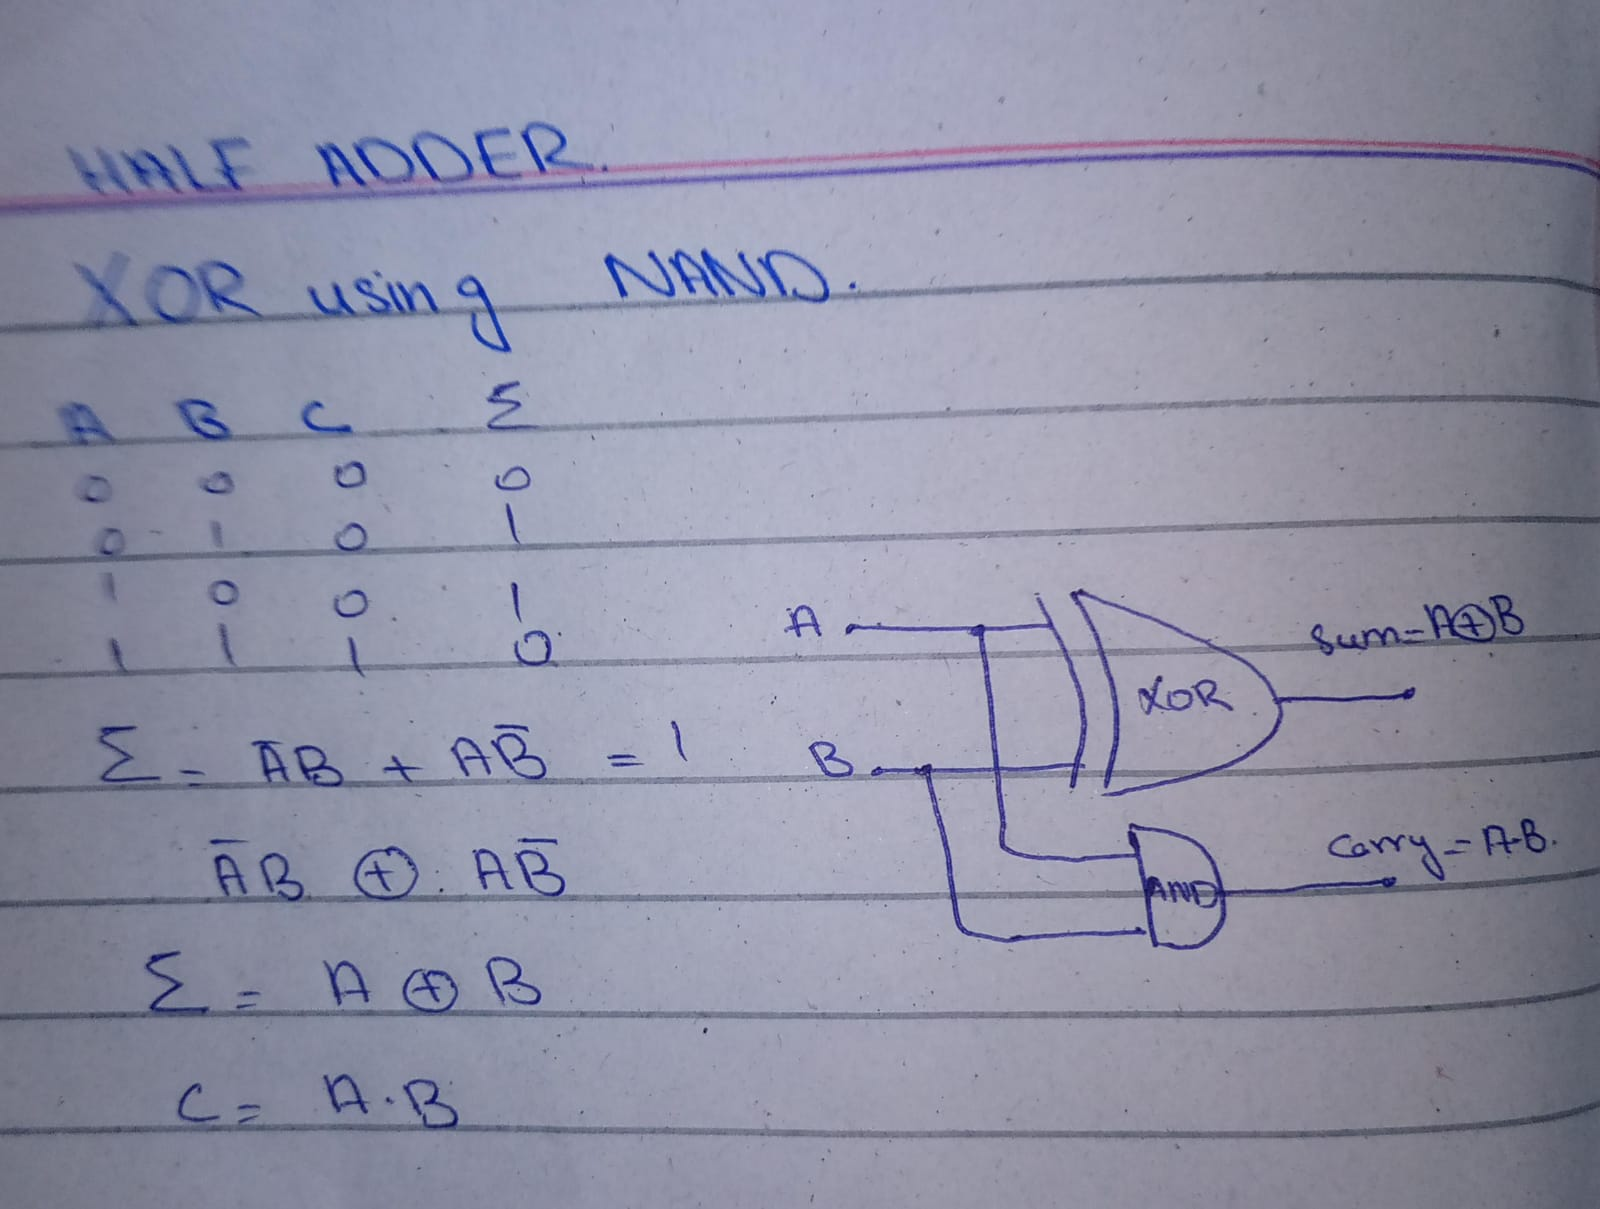 HALF ADDER.
XOR using NAND.
A B C Σ
0 0 0 0
0 1 0 1
1 0 0 1
1 1 1 0
Σ = ĀB + AB̄ = 1
ĀB ⊕ AB̄
Σ = A ⊕ B
C = A·B
A
B
XOR
Sum = A⊕B
AND
Carry = A·B.